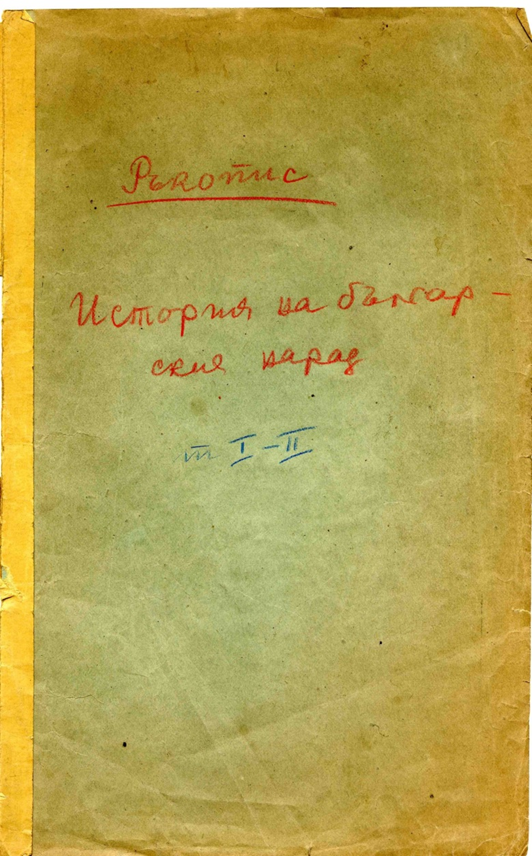 Ръкопис
История на българ-
ския народ
т I-II